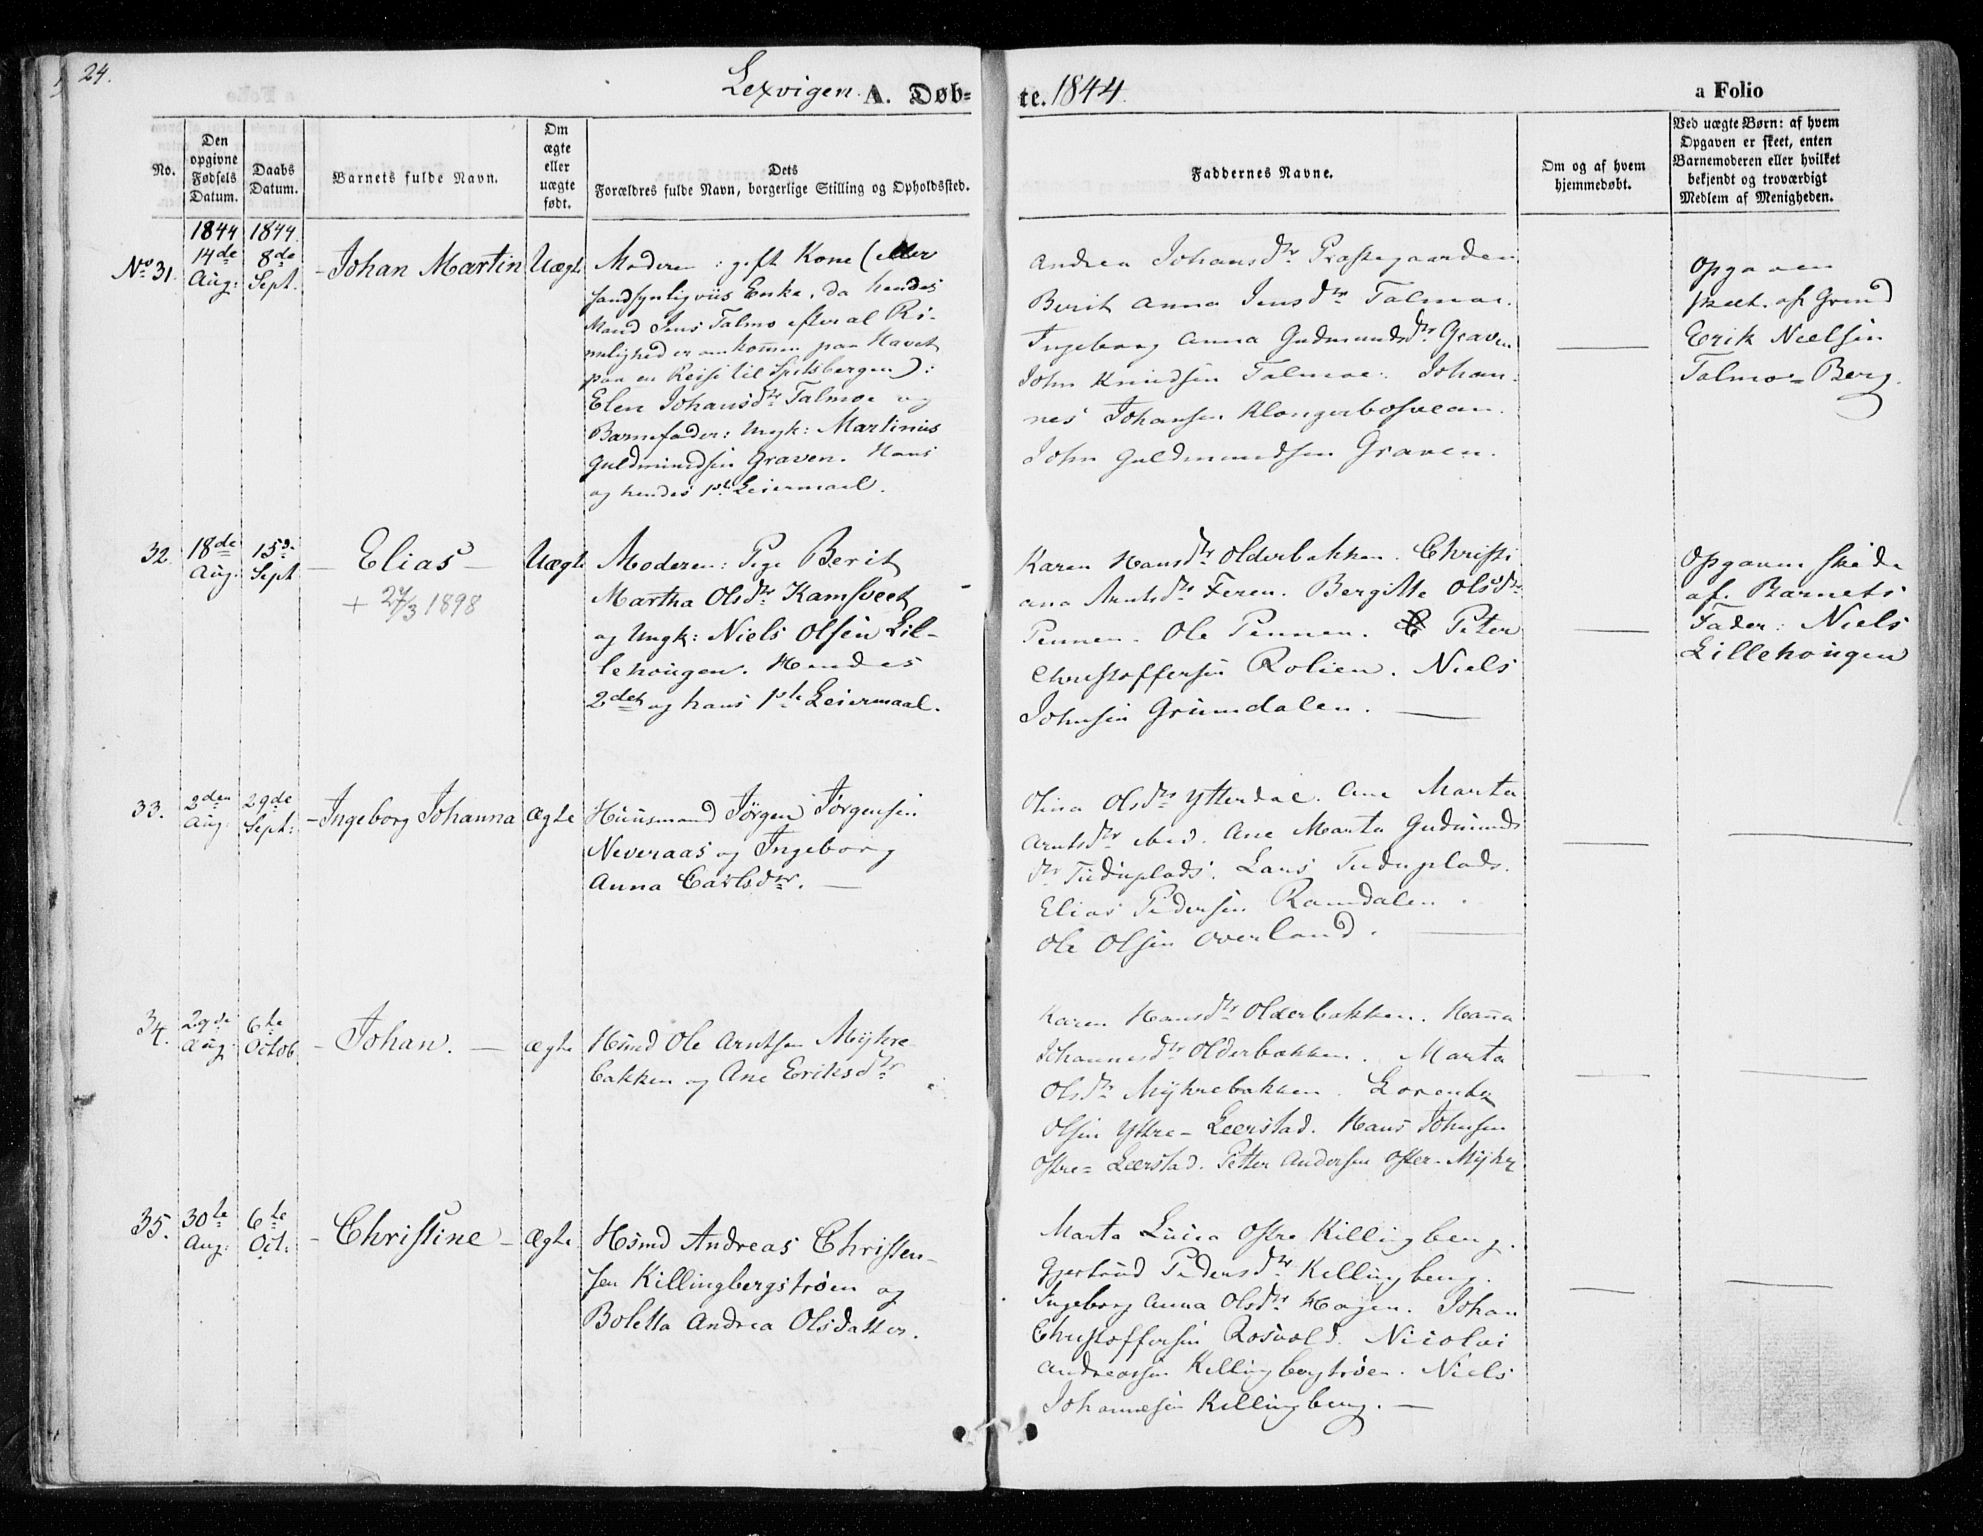 24.
Lexvigen. A. Døb=
te. 1844.
a Folio
No.
Den opgivne Fødsels Datum.
Daabs Datum.
Barnets fulde Navn.
Om ægte eller uægte født.
Dets Forældres fulde Navn, borgerlige Stilling og Opholdssted.
Faddernes Navne.
Om og af hvem hjemmedøbt.
Ved uægte Børn: af hvem Opgaven er skeet, enten Barnemoderen eller hvilket bekjendt og troværdigt Medlem af Menigheden.
1844 1844.
No 31.
14de Aug:
8de Sept.
Johan Martin
Uægte
Moderen: gift Kone (eller
sandsynligviis Enke, da hendes
Mand Jens Talmo efter al Ri-
melighed er omkommen paa Havet
paa en Reise til Spitsbergen):
Elen Johansdtr Talmoe og
Barnefader: Ungk: Martinus
Guldmundsen Graven. Hans
og hendes 1ste Leiermaal.
Andrea Johansdtr Præstegaarden
Berit Anna Jensdtr Talmoe.
Ingeborg Anna Gudmundsdtr Graven
John Knudsen Talmoe. Johan-
nes Johansen Klongerbosveen.
John Guldmundsen Graven.
Opgaven
skeet af Grmd
Erik Nielsen
Talmoe=Berg.
32.
18de Aug.
15de Sept
Elias
+ 27/3 1898
Uægte
Moderen: Pige Berit
Martha Olsdtr Kamsveet
og Ungk: Niels Olsen Lil-
lehougen. Hendes
2det og hans 1ste Leiermaal.
Karen Hansdtr Olderbakken. Christi
ana Arntsdtr Feren. Bergitte Olsdtr
Pennen. Ole Pennen. Peter
Christoffersen Rolien. Niels
Johnsen Grøndalen.
Opgaven skede
af Barnets
Fader: Niels
Lillehougen
33.
2den Aug:
29de Sept:
Ingeborg Johanna
Ægte
Huusmand Jørgen Jørgensen
Neveraas og Ingeborg
Anna Carlsdtr.
Olina Olsdtr Ytterdal. Ane Marta
Arntsdtr ibid. Ane Marta Gudmunds
dtr . Lars
Elias Pedersen Ramdalen.
Ole Olsen Overland.
34.
29de Aug:
6te Octob
Johan.
Ægte
Hsmd Ole Arntsen Myhre
bakken og Ane Eriksdtr
Karen Hansdtr Olderbakken. Hanna
Johannesdtr Olderbakken. Marta
Olsdtr Myhrebakken. Lorents
Olsen Yttre-Leerstad. Hans Johnsen
Østre=Leerstad. Petter Andersen Øster-Myhr
35.
30te Aug:
6te Oct:
Christine
Ægte
Hsmd Andreas Christen-
sen Killingbergstrøen og
Boletta Andrea Olsdatter.
Marta Lucia Østre Killingberg.
Gjertrud Pedersdtr Killingberg.
Ingeborg Anna Olsdtr Hagen. Johan
Christoffersen Rosvold. Nicolai
Andreassen Killingbergtrøen. Niels
Johannesen Killingberg.